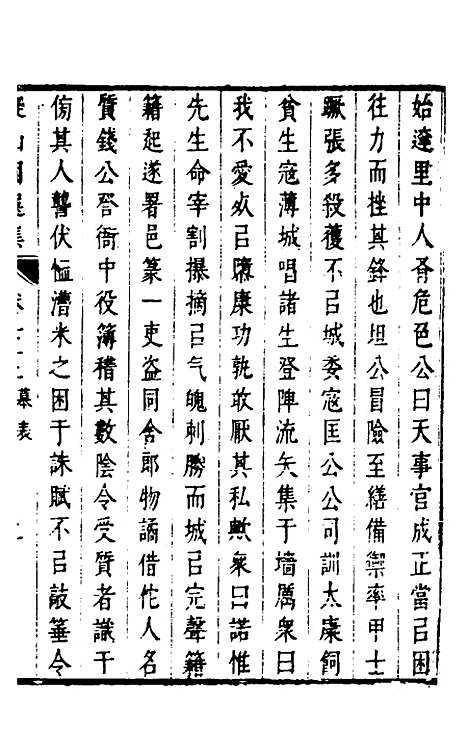 始達里中人咸危邑公曰天事官成正當㠯困
往力而挫其鋒也坦公冒險至繕備禦率甲士
蹶張多殺獲不㠯城委寇匡公公司訓太康飼
貧生寇薄城唱諸生登陴流矢集于墻厲衆曰
我不愛𤆍㠯隳康功孰敢厭其私歟衆曰諾惟
先生命宰割撮摘㠯气魄刺勝而城㠯完聲籍
籍起遂署邑篆一吏盜同舍郎物譎借佗人名
質錢公咎衙中役簿稽其數陰令受質者識于
㑂其人讋伏恤漕米之困于誅賦不㠯敲箠令
山 園 選集 卷 墓表